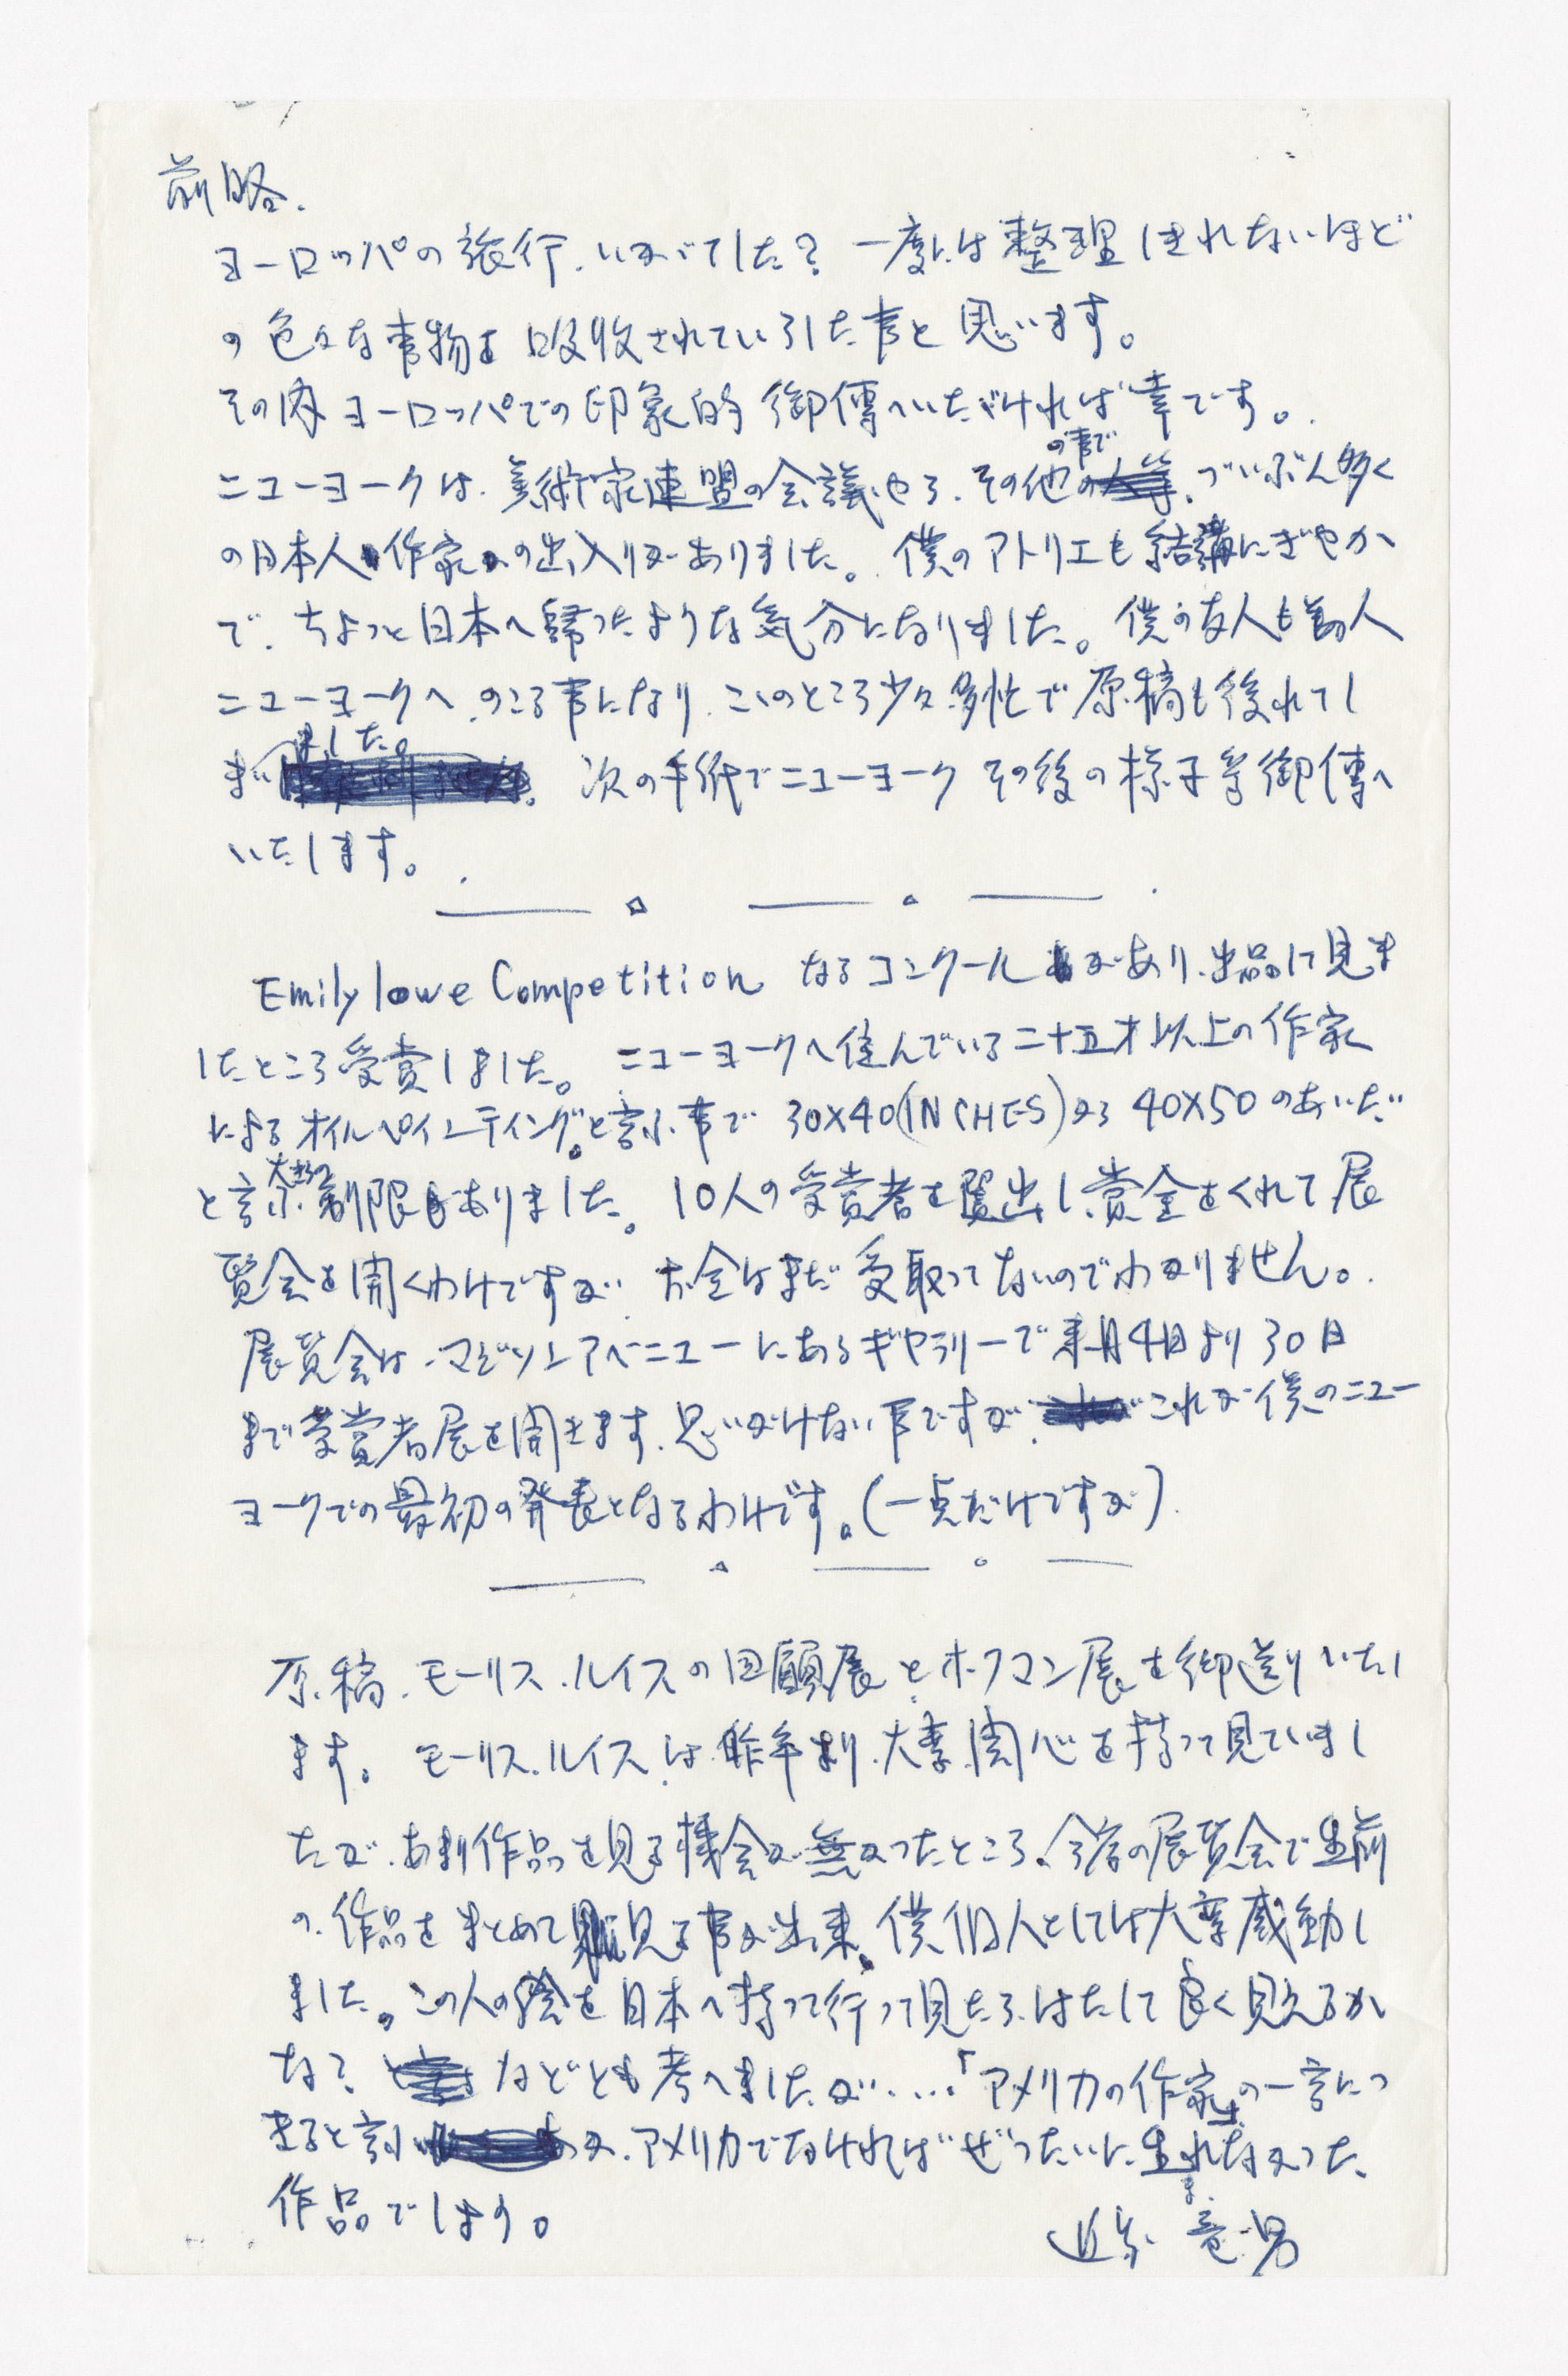 前略.
ヨーロッパの旅行、いかがでした? 一度には整理しきれないほど
の色々な事物を吸収されていらした事と思います。
その内ヨーロッパでの印象的御傳へいたゞければ幸です。
ニューヨークは、美術家連盟の会議やら、その他の事で、づいぶん多く
の日本人作家の出入りがありました。僕のアトリエも結構にぎやか
で、ちょっと日本へ帰ったような気分になりました。僕の友人も数人
ニューヨークへ、のこる事になり、こゝのところ少々多忙で原稿も後れてし
まいました。次の手紙でニューヨークその後の様子等御傳へ
いたします。
Emily lowe Competition なるコンクールがあり、出品して見ま
したところ受賞しました。ニューヨークへ住んでいる二十五才以上の作家
によるオイルペインティングと言ふ事で 30X40(INCHES)から 40X50 のあいだ
と言ふ大きさの制限もありました。10人の受賞者を選出し、賞金をくれて展
覧会を開くわけですが、お金はまだ受取ってないのでわかりません。
展覧会は、マジソンアベニューにあるギヤラリーで来月4日より30日
まで受賞者展を開きます、思いがけない事ですが、これが僕のニュー
ヨークでの最初の発表となるわけです。(一点だけですが)
原稿、モーリス、ルイスの回顧展とホフマン展を御送りいたし
ます。モーリス、ルイス、は昨年より、大変、関心を持って見ていまし
たが、あまり作品を見る機会が無かったところ、今度の展覧会で生前
の作品をまとめて見る事が出来、僕個人としては大変感動し
ました。この人の絵を日本へ持って行って見たら、はたして良く見えるか
な? などとも考へましたが…「アメリカの作家」の一言につ
きると言ふか、アメリカでなければぜったいに生まれなかった
作品でしょう。
近藤 竜男